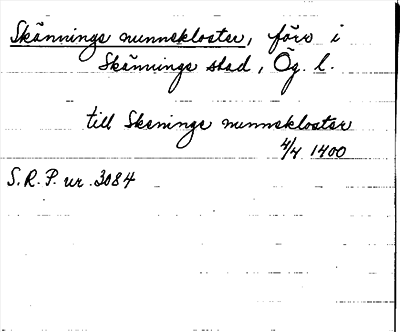 Skänninge nunnekloster, förs i
Skänninge stad, Ög. l.
till Skeninge nunnekloster
4/4 1400
S.R.P. nr. 3084